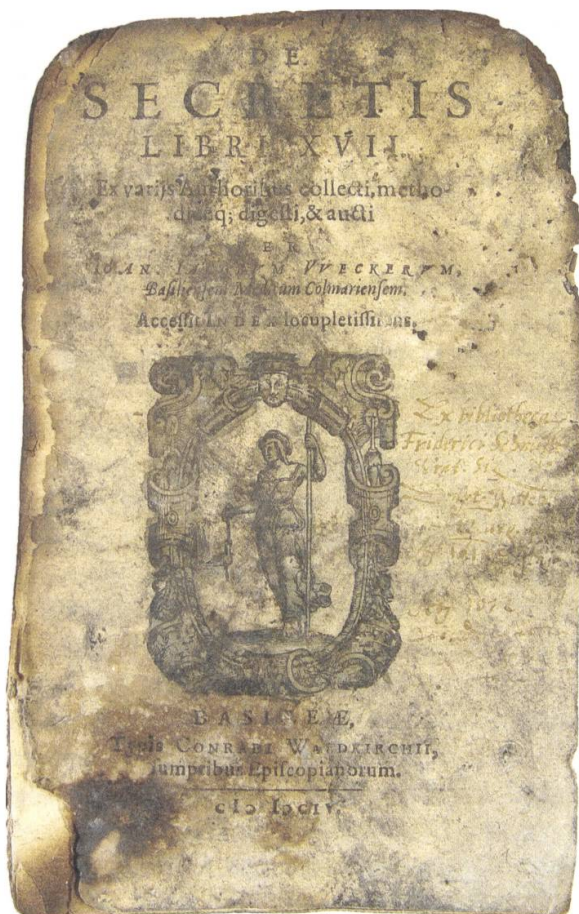 DE
SECRETIS
LIBRI XVII.
Ex varijs Authoribus collecti, metho-
diceq; digesti, & aucti
PER
IOAN. IACOBVM VVECKERVM,
Basiliensem Medicum Colmariensem.
Accessit INDEX locupletissimus.
Ex bibliotheca
Friderici
BASILEÆ,
Typis CONRADI WALDKIRCHII,
sumptibus Episcopianorum.
cIɔ Iɔ CIV.